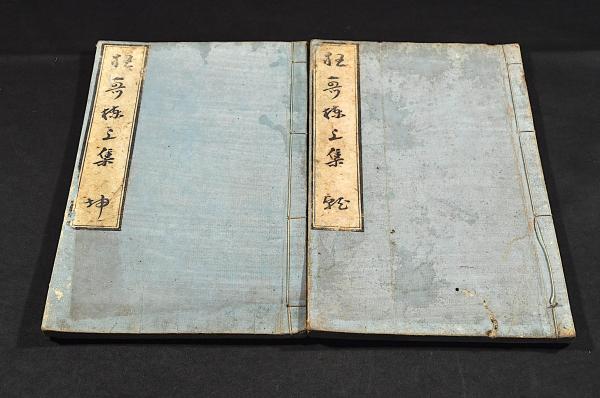 狂哥棟上集 乾
狂哥棟上集 坤